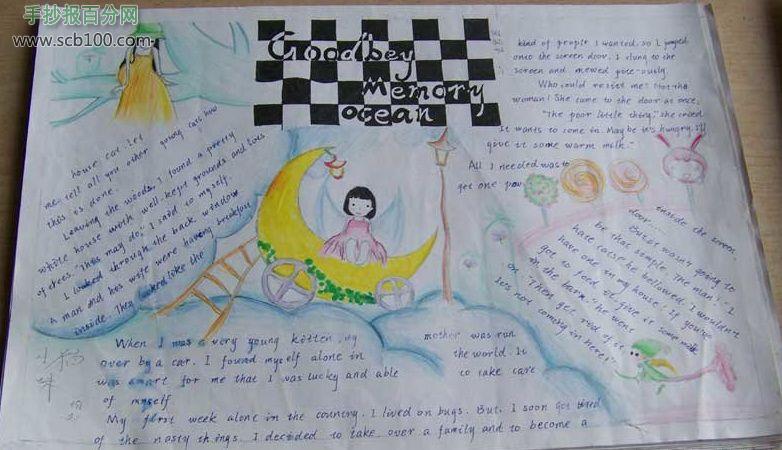 手抄报百分网
www.scb100.com
Goodbey
Memory
ocean
house cat. Let
me tell all you other young cats how
this is done.
Leaving the woods, I found a pretty
white house with well-kept grounds and lots
of trees. "This may do," I said to myself.
I looked through the back window
A man and his wife were having breakfast
inside. They looked like the
kind of people I wanted, so I jumped
onto the screen door. I clung to the
screen and mewed
Who could resist me? Not the
woman! She came to the door at once.
"The poor little thing," she cried.
It wants to come in. May be it's hungry. I'll
give it some warm milk."
All I needed was to
get one paw
inside the screen
door....
But it wasn't going to
be that simple. The man!
hate cats! he bellowed. I wouldn't
have one in my house! If you've
got to feed it, give it some milk
in the barn." he went
on Then get rid of it
It's not coming in here!"
When I was a very young kitten, my mother was run
over by a car. I found myself alone in the world. It
was smart for me that I was lucky and able to take care
of myself
My first week alone in the country. I lived on bugs. But, I soon got tired
of the nasty things. I decided to take over a family and to become a